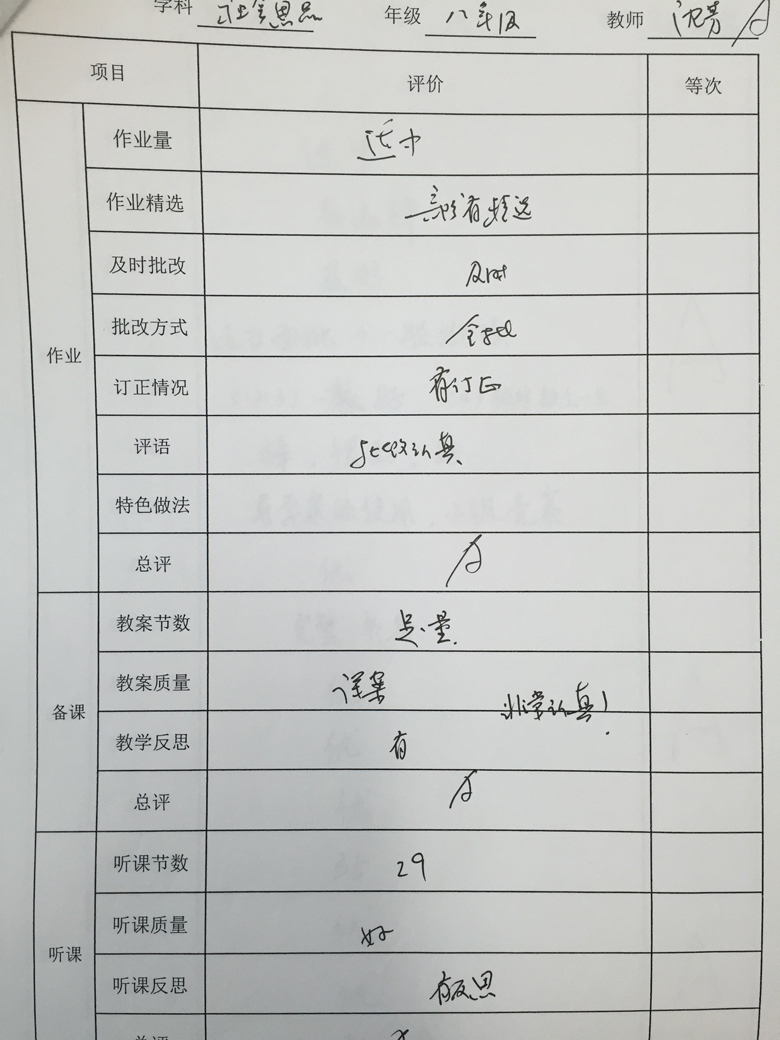 学科 年级 八年级 教师 沈芳 A
项目 评价 等次
作业
作业量 适中
作业精选 有精选
及时批改 及时
批改方式 全批
订正情况 有订正
评语 批改认真
特色做法
总评 A
备课
教案节数 足量
教案质量 详案 非常认真！
教学反思 有
总评 A
听课
听课节数 29
听课质量 好
听课反思 有反思
总评